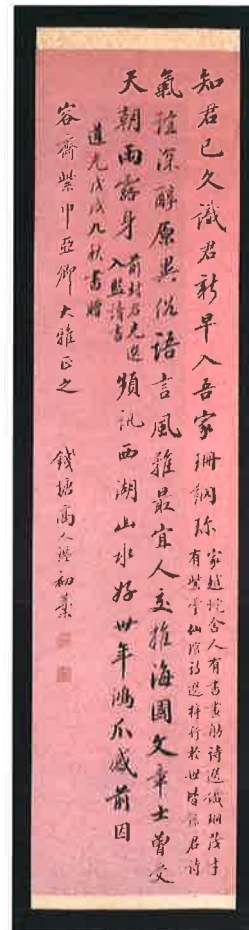 知君已久識君新早入吾家珊網珍
家越垞舍人有書畫舫詩選誠珊茂才
有紫雲仙琯詩選梓行於世皆錄君詩
氣誼深醇原異俗語言風雅最宜人交推海國文章士曾受
天朝雨露身
入監讀書
頻訊西湖山水好卅年鴻爪感前因
道光戊戌九秋書贈
容齋紫巾亞卿大雅正之
錢塘高人鑑初藁